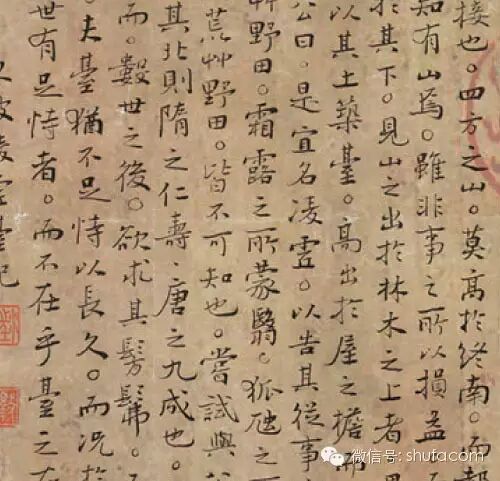 接也。四方之山。莫高於終南。而都
知有山焉。雖非事之所以損益
於其下。見山之出於林木之上者
以其土築臺。高出於屋之檐而
公曰。是宜名凌虛。以告其從事
艸野田。霜露之所蒙翳。狐虺之
荒艸野田。皆不可知也。嘗試與
其北則隋之仁壽、唐之九成也。
而。數世之後。欲求其髣髴。
夫臺猶不足恃以長久。而況於
世有足恃者。而不在乎臺之存
坡凌虛臺記
微信号: shufacom